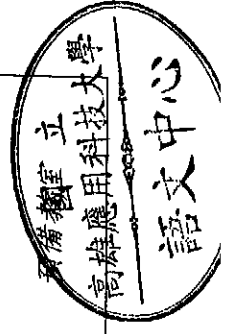 國立
高雄應用科技大學
語文中心